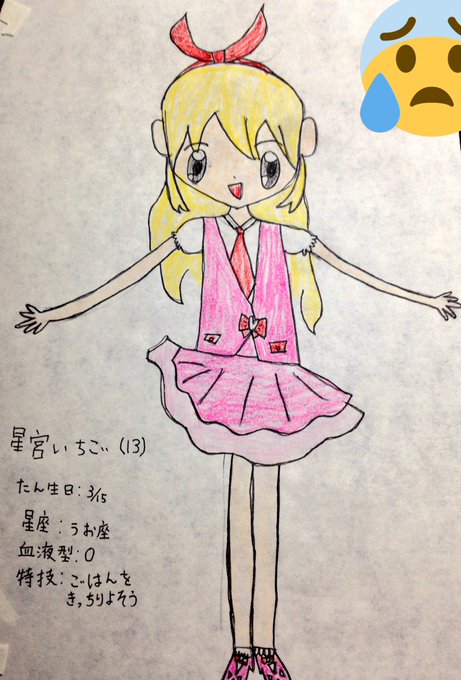 星宮いちご(13)
たん生日:3/15
星座:うお座
血液型:O
特技:ごはんを
きっちりよそう